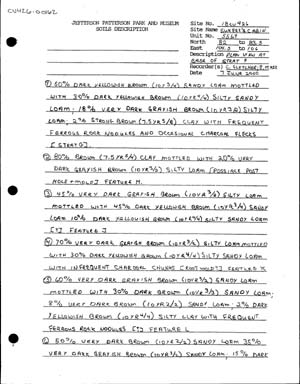 CV426-0062
JEFFERSON PATTERSON PARK AND MUSEUM
SOILS DESCRIPTION
Site No. 18CV426
Site Name SUKEEK'S CABIN
Unit No. 5567
North 82 to 83.3
East 104.3 to 106
Description PLAN VIEW AT
BASE OF STRAT F
Recorder(s) C. FLETCHER, P. MASE
Date 7 JUNE 2000
① 50% DARK YELLOWISH BROWN (10YR 3/4) SANDY LOAM MOTTLED
WITH 30% DARK YELLOWISH BROWN (10YR 4/4) SILTY SANDY
LOAM; 18% VERY DARK GRAYISH BROWN (10YR 3/2) SILTY
LOAM; 2% STRONG BROWN (7.5YR 5/8) CLAY WITH FREQUENT
FERROUS ROCK NODULES AND OCCASIONAL CHARCOAL FLECKS
[STRAT G].
② 80% BROWN (7.5YR 5/4) CLAY MOTTLED WITH 20% VERY
DARK GRAYISH BROWN (10YR 3/2) SILTY LOAM [POSSIBLE POST
HOLE + MOLD] FEATURE M.
③ 45% VERY DARK GRAYISH BROWN (10YR 3/2) SILTY LOAM
MOTTLED WITH 45% DARK YELLOWISH BROWN (10YR 3/4) SANDY
LOAM 10% DARK YELLOWISH BROWN (10YR 4/4) SILTY SANDY LOAM
[?] FEATURE J
④ 70% VERY DARK GRAYISH BROWN (10YR 3/2) SILTY LOAM MOTTLED
WITH 30% DARK YELLOWISH BROWN (10YR 3/4) SILTY SANDY LOAM
WITH INFREQUENT CHARCOAL CHUNKS [ROOT HOLE?] FEATURE K
⑤ 60% VERY DARK GRAYISH BROWN (10YR 3/2) SANDY LOAM
MOTTLED WITH 30% DARK BROWN (10YR 3/3) SANDY LOAM;
8% VERY DARK BROWN (10YR 2/2) SANDY LOAM; 2% DARK
YELLOWISH BROWN (10YR 4/4) SILTY CLAY WITH FREQUENT
FERROUS ROCK NODULES [?] FEATURE L
⑥ 50% VERY DARK BROWN (10YR 2/2) SANDY LOAM 35%
VERY DARK GRAYISH BROWN (10YR 3/2) SANDY LOAM; 15% DARK